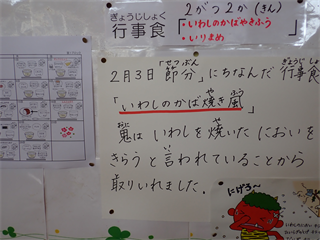 ぎょうじしょく
行事食
2がつ2か(きん)
・いわしのかばやきふう
・いりまめ
せつぶん ぎょうじしょ
2月3日「節分」にちなんだ 行事食
や ふう
「いわしのかば焼き風」
おに や
鬼は いわしを焼いた においを
い
きらうと言われていることから
取りいれました。
にげろ〜